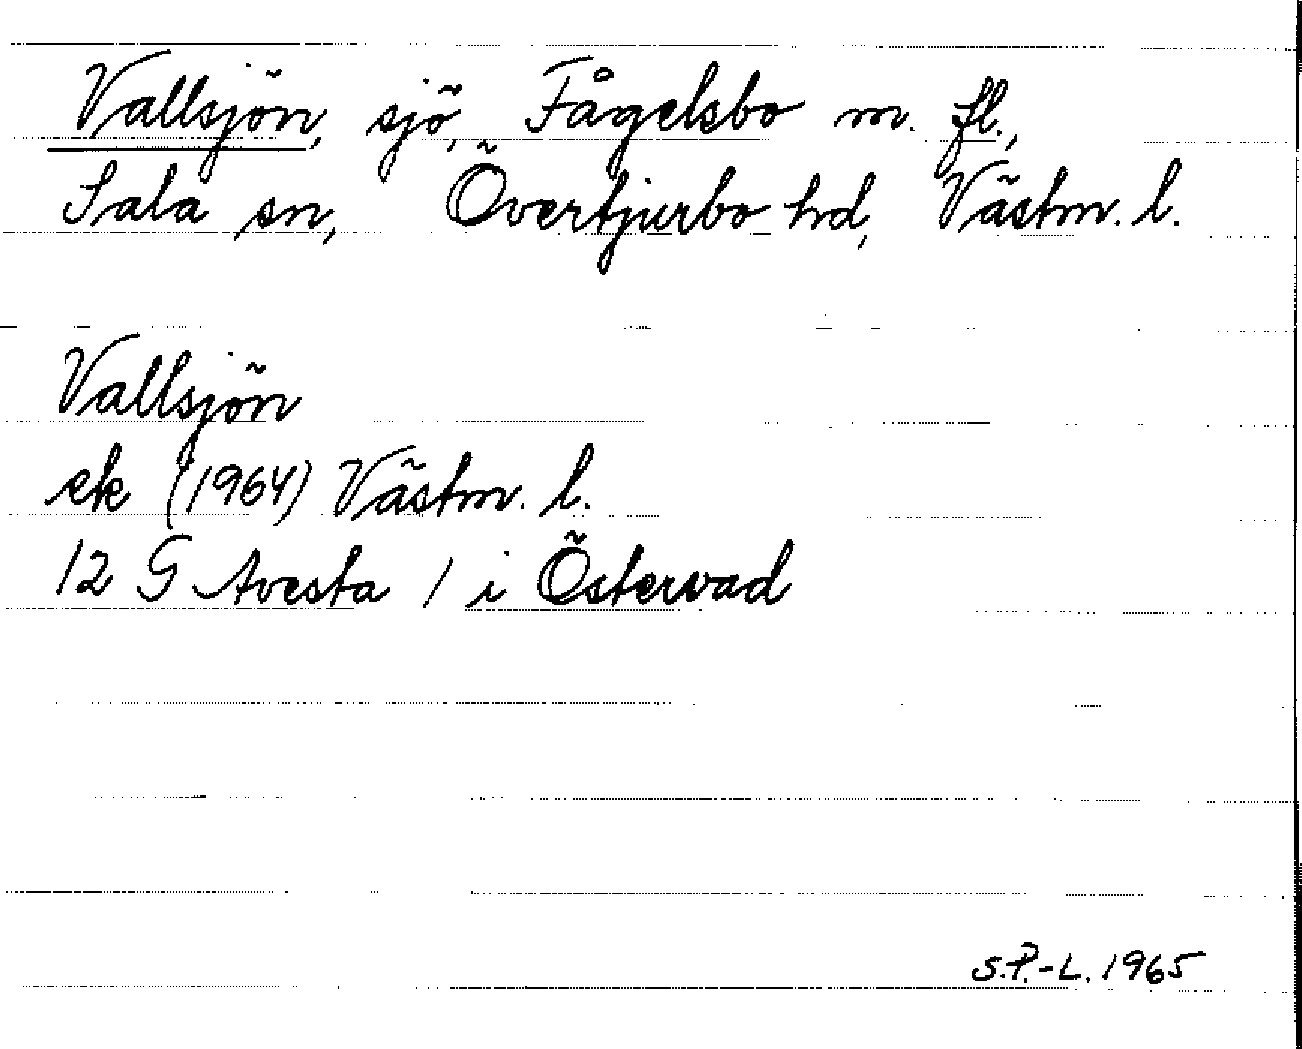 Vallsjön, sjö, Fågelsbo m. fl.,
Sala sn, Övertjurbo hd, Västm. l.
Vallsjön
ek (1964) Västm. l.
12 G Avesta / i Östervad
S.P.-L. 1965